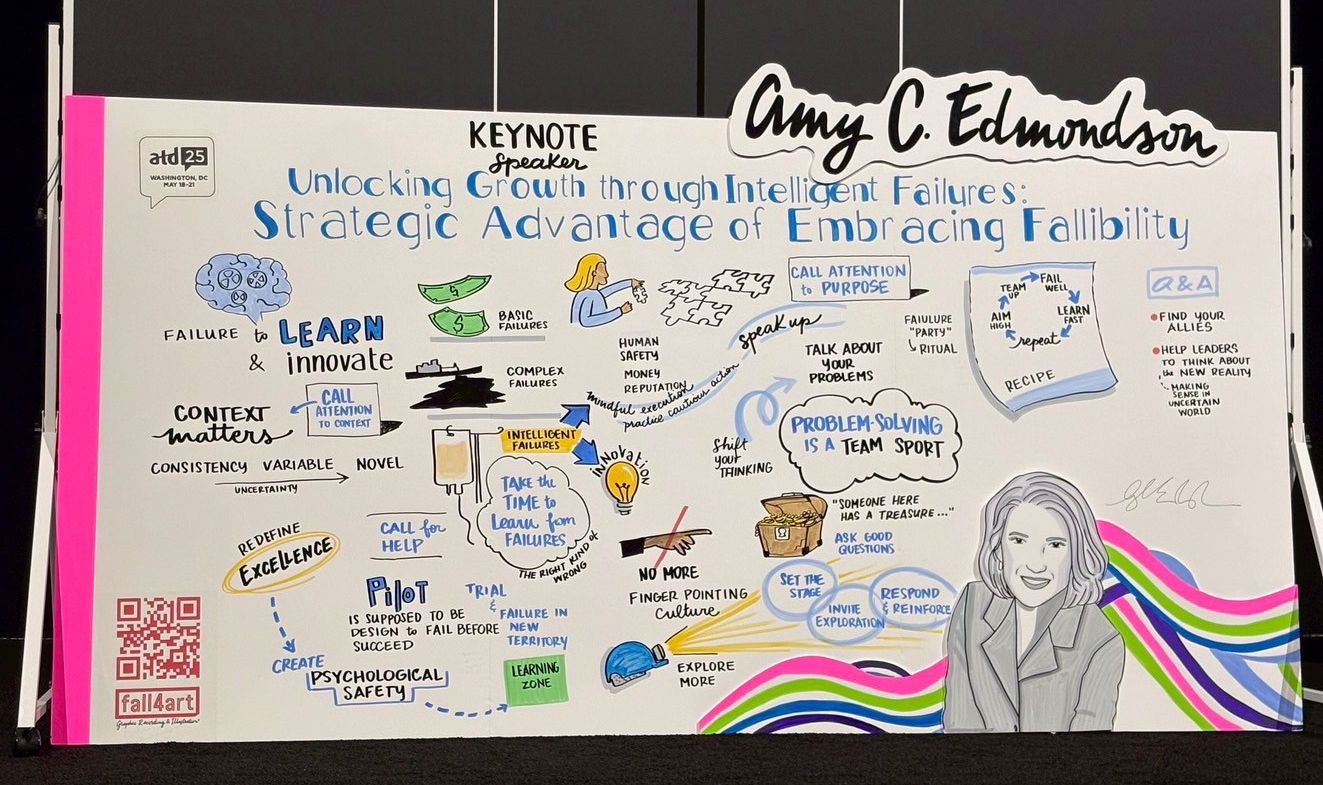 Amy C. Edmondson
KEYNOTE
speaker
atd 25
WASHINGTON, DC
MAY 18-21
Unlocking Growth through Intelligent Failures:
Strategic Advantage of Embracing Fallibility
FAILURE to LEARN
& innovate
CONTEXT
matters
CALL
ATTENTION
TO CONTEXT
CONSISTENCY VARIABLE NOVEL
UNCERTAINTY
REDEFINE
EXCELLENCE
CREATE
PSYCHOLOGICAL
SAFETY
LEARNING
ZONE
CALL for
HELP
PILOT
IS SUPPOSED TO BE
DESIGN to FAIL BEFORE
SUCCEED
TRIAL
&
FAILURE IN
NEW
TERRITORY
BASIC
FAILURES
COMPLEX
FAILURES
INTELLIGENT
FAILURES
TAKE the
TIME to
Learn from
FAILURES
THE RIGHT KIND of
WRONG
INNOVATION
HUMAN
SAFETY
MONEY
REPUTATION
mindful execution
practice cautious action
speak up
CALL ATTENTION
to PURPOSE
TALK ABOUT
YOUR
PROBLEMS
Shift
your
THINKING
PROBLEM-SOLVING
IS A TEAM SPORT
NO MORE
FINGER POINTING
Culture
"SOMEONE HERE
HAS A TREASURE..."
ASK GOOD
QUESTIONS
SET THE
STAGE
INVITE
EXPLORATION
RESPOND
& REINFORCE
EXPLORE
MORE
FAIULURE
"PARTY"
RITUAL
TEAM
UP
FAIL
WELL
LEARN
FAST
repeat
AIM
HIGH
RECIPE
Q&A
FIND YOUR
ALLIES
HELP LEADERS
TO THINK ABOUT
the NEW REALITY
MAKING
SENSE IN
UNCERTAIN
WORLD
fall4art
Graphic Recording & Illustration